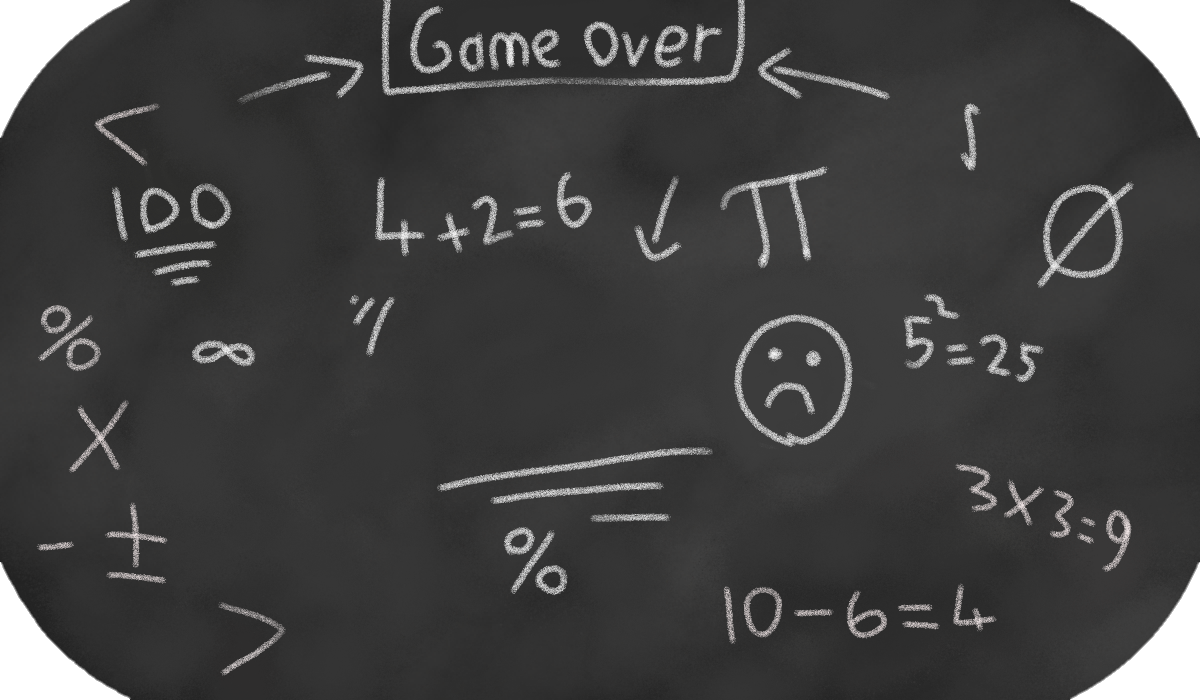 Game Over
<
∫
100
4+2=6
↓
π
Ø
%
∞
5²=25
×
3×3=9
- ±
%
10-6=4
>